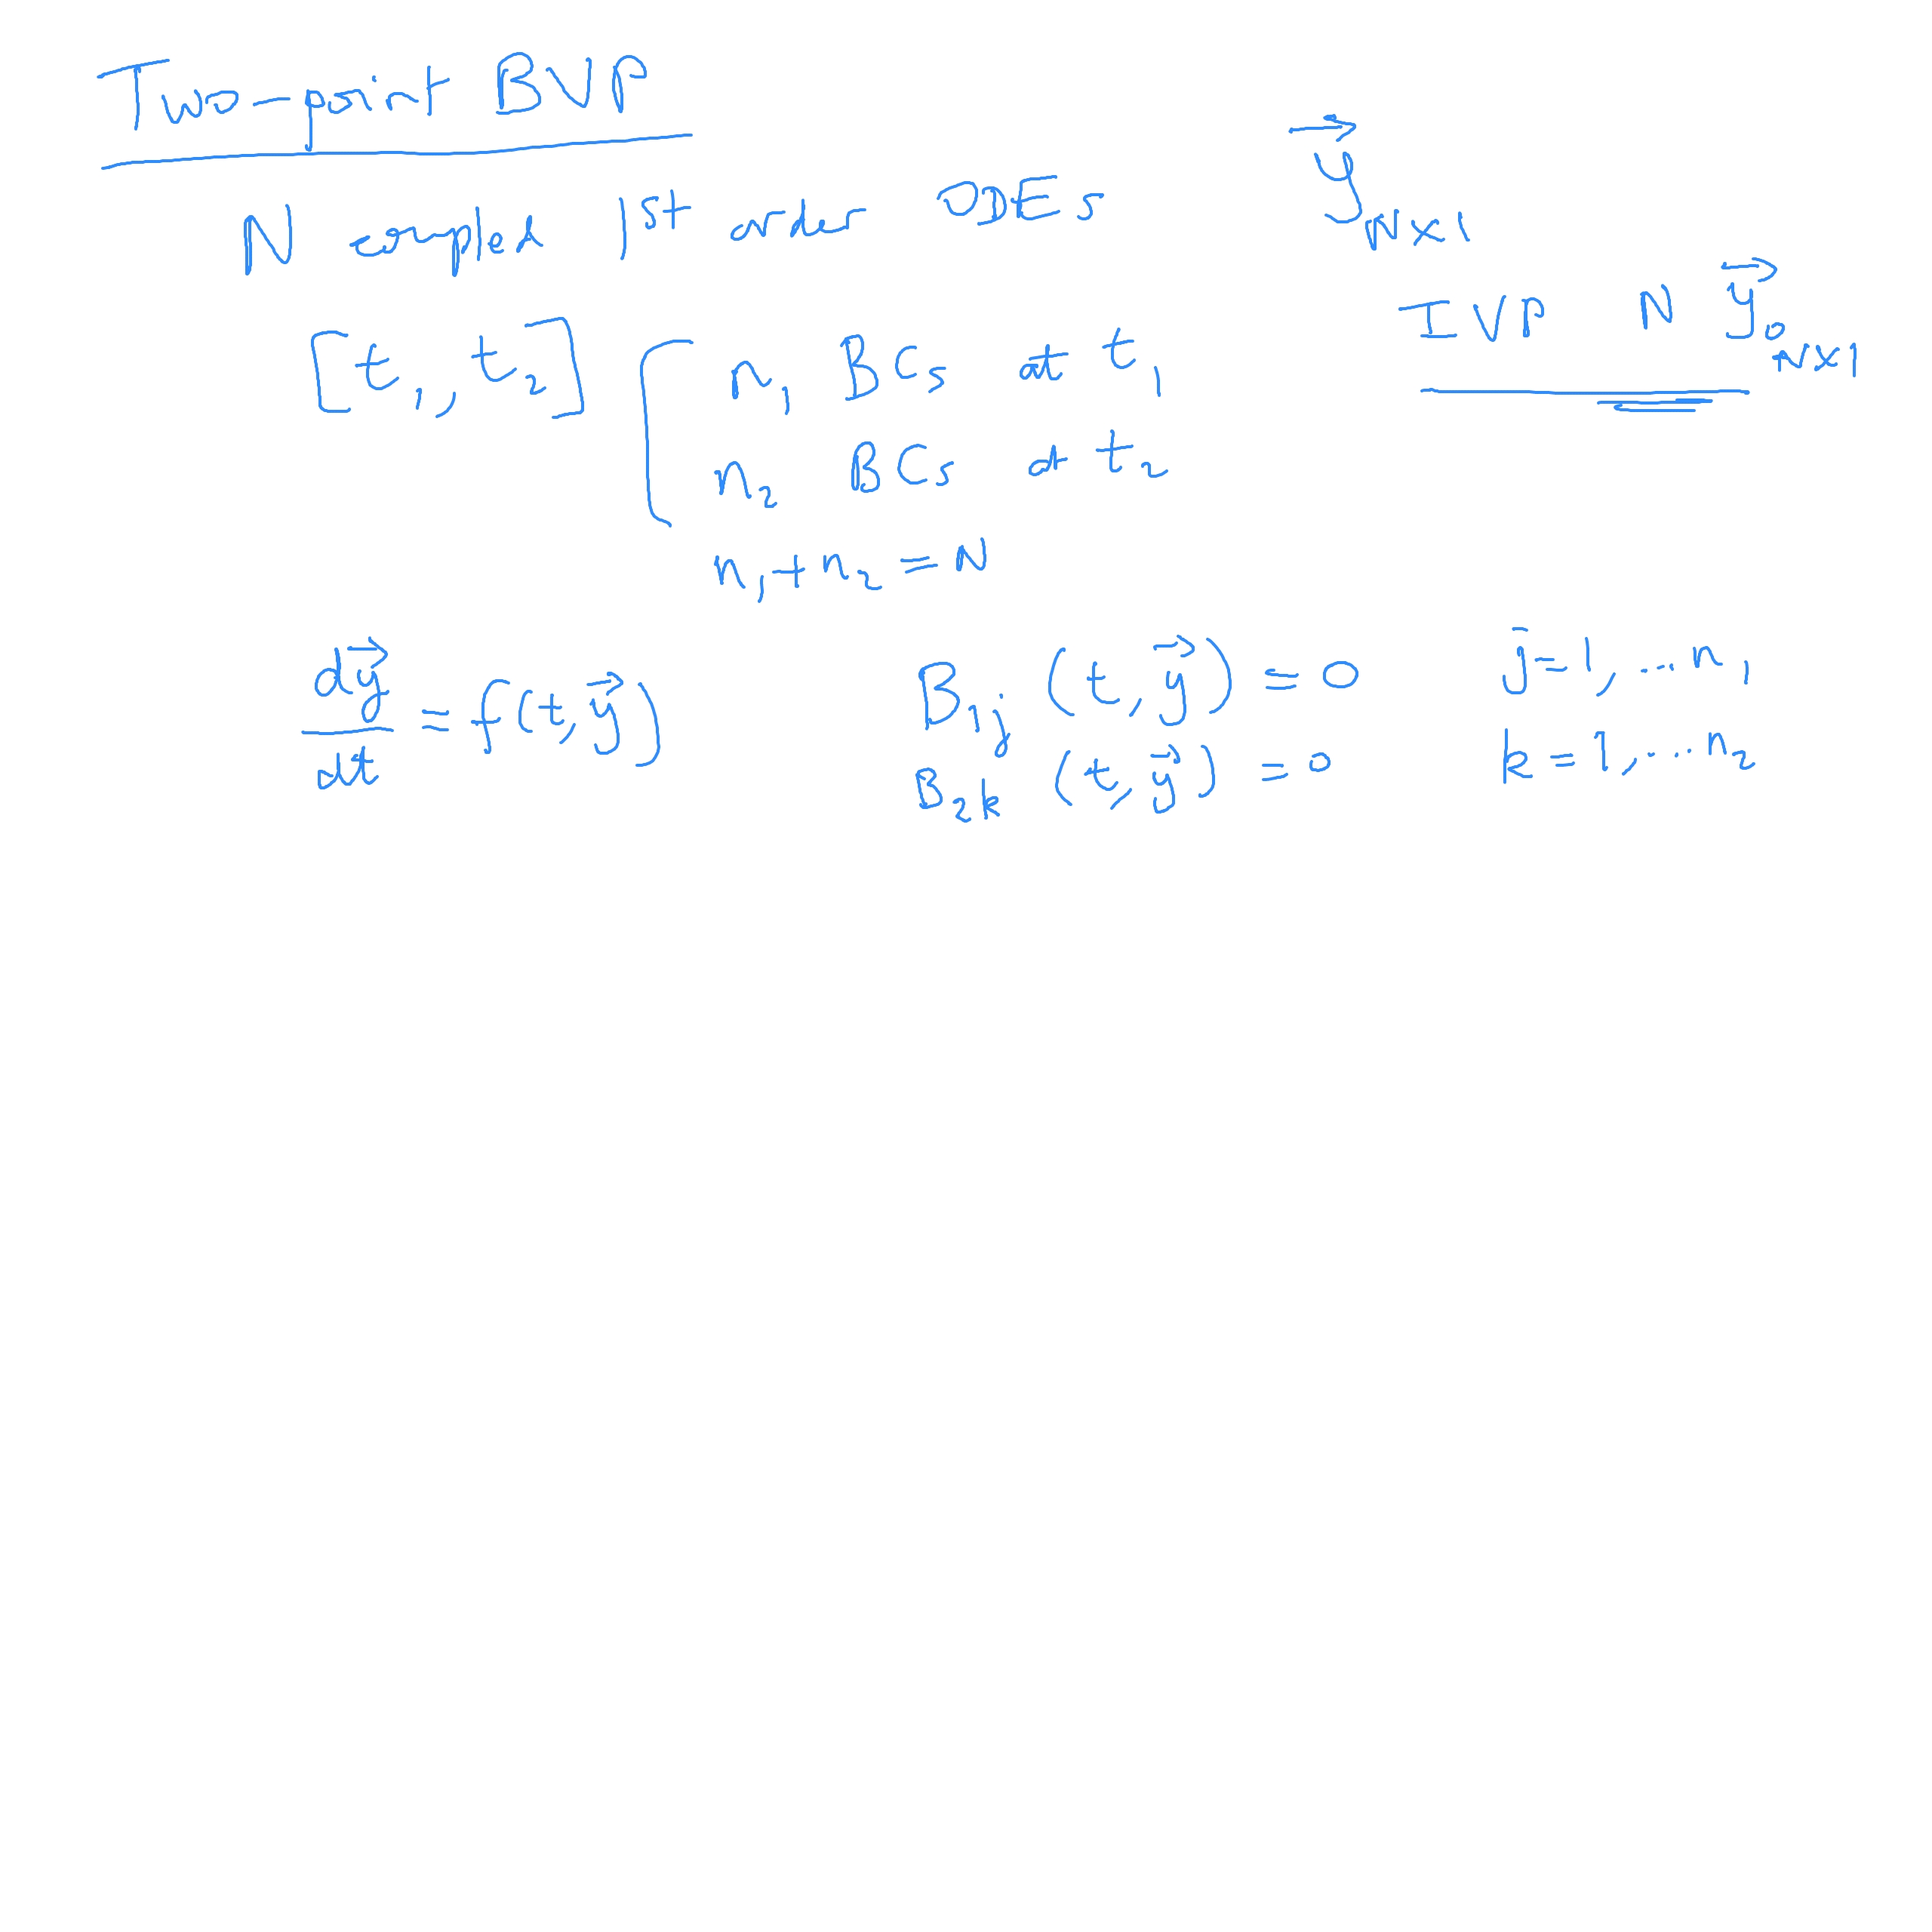 Two-point BVP
N coupled 1st order ODEs y⃗ N×1
IVP N y⃗₀ N×1
[t₁, t₂] n₁ BCs at t₁
n₂ BCs at t₂
n₁ + n₂ = N
dy⃗/dt = f(t, y⃗)
B₁ⱼ (t, y⃗) = 0 j = 1, ... n₁
B₂ₖ (t, y⃗) = 0 k = 1, ... n₂